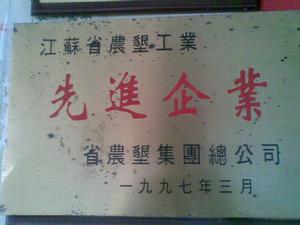 江蘇省農墾工業
先進企業
省農墾集團總公司
一九九七年三月